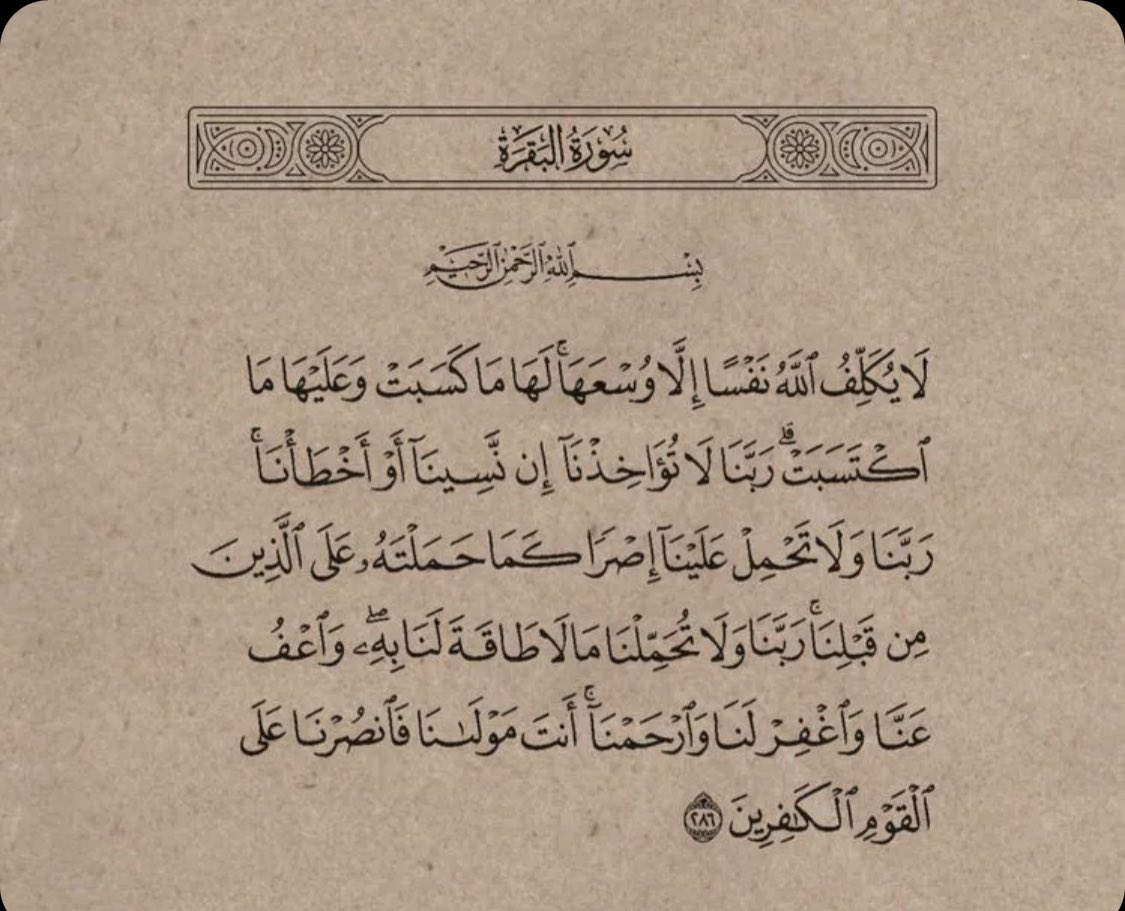 سُورَةُ البَقَرَةِ
بِسْمِ ٱللَّهِ ٱلرَّحْمَٰنِ ٱلرَّحِيمِ
لَا يُكَلِّفُ ٱللَّهُ نَفْسًا إِلَّا وُسْعَهَا ۚ لَهَا مَا كَسَبَتْ وَعَلَيْهَا مَا
ٱكْتَسَبَتْ ۗ رَبَّنَا لَا تُؤَاخِذْنَآ إِن نَّسِينَآ أَوْ أَخْطَأْنَا ۚ
رَبَّنَا وَلَا تَحْمِلْ عَلَيْنَآ إِصْرًا كَمَا حَمَلْتَهُۥ عَلَى ٱلَّذِينَ
مِن قَبْلِنَا ۚ رَبَّنَا وَلَا تُحَمِّلْنَا مَا لَا طَاقَةَ لَنَا بِهِۦ ۖ وَٱعْفُ
عَنَّا وَٱغْفِرْ لَنَا وَٱرْحَمْنَآ ۚ أَنتَ مَوْلَىٰنَا فَٱنصُرْنَا عَلَى
ٱلْقَوْمِ ٱلْكَٰفِرِينَ ٢٨٦